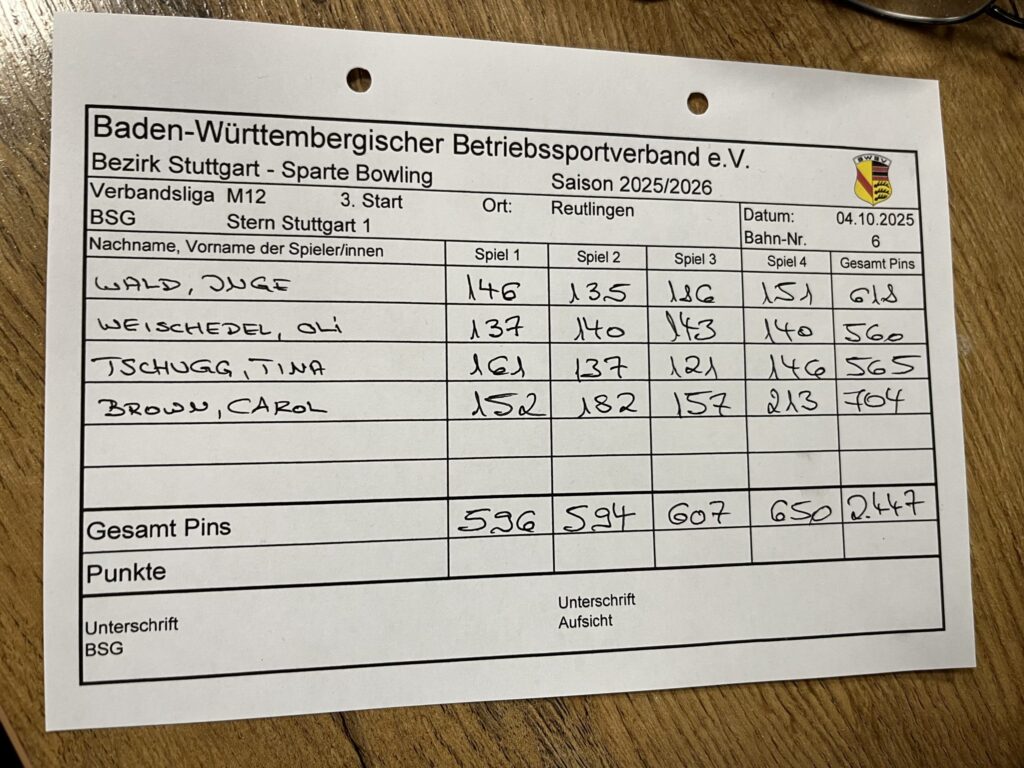 Baden-Württembergischer Betriebssportverband e.V.
BWBSV
Bezirk Stuttgart - Sparte Bowling Saison 2025/2026
Verbandsliga M12 3. Start Ort: Reutlingen Datum: 04.10.2025
BSG Stern Stuttgart 1 Bahn-Nr. 6
Nachname, Vorname der Spieler/innen Spiel 1 Spiel 2 Spiel 3 Spiel 4 Gesamt Pins
WALD, INGE 146 135 186 151 618
WEISCHEDEL, OLI 137 140 143 140 560
TSCHUGG, TINA 161 137 121 146 565
BROWN, CAROL 152 182 157 213 704
Gesamt Pins 596 594 607 650 2.447
Punkte
Unterschrift BSG
Unterschrift Aufsicht